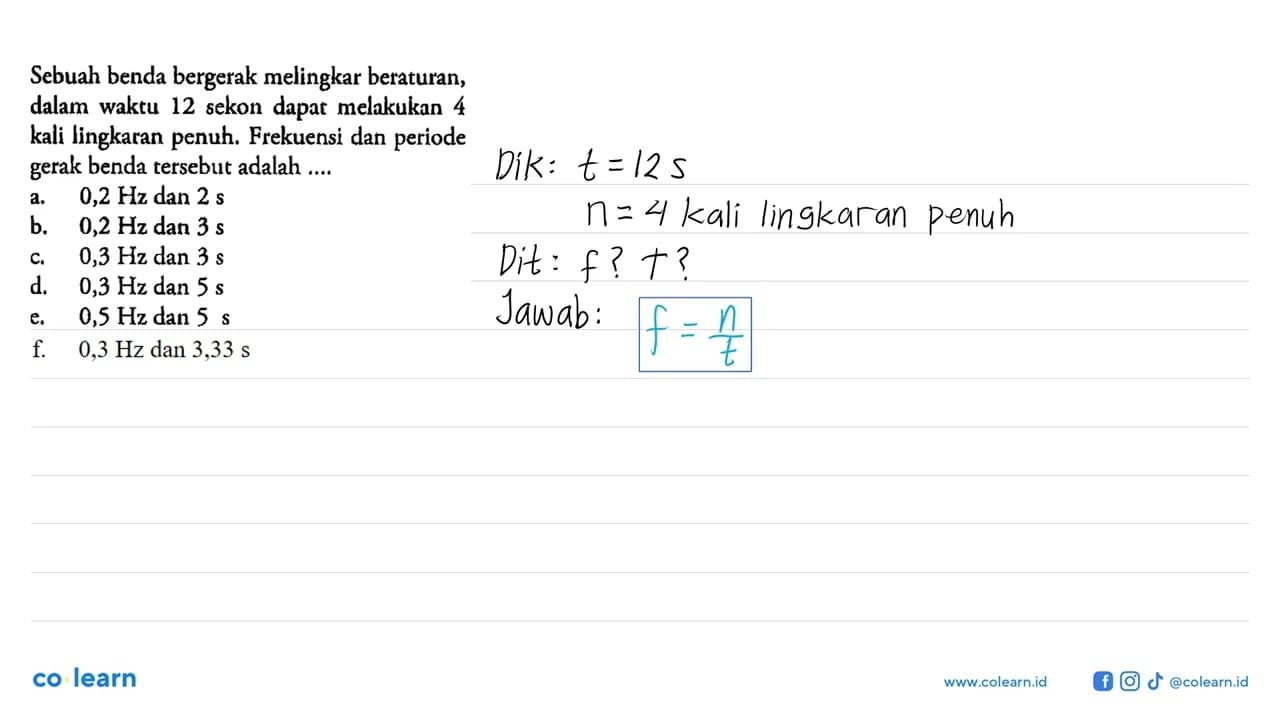 Sebuah benda bergerak melingkar beraturan,
dalam waktu 12 sekon dapat melakukan 4
kali lingkaran penuh. Frekuensi dan periode
gerak benda tersebut adalah ....
a. 0,2 Hz dan 2 s
b. 0,2 Hz dan 3 s
c. 0,3 Hz dan 3 s
d. 0,3 Hz dan 5 s
e. 0,5 Hz dan 5 s
f. 0,3 Hz dan 3,33 s
Dik: t = 12 s
n = 4 kali lingkaran penuh
Dit: f? T?
Jawab: f = n/t
co learn
www.colearn.id
@colearn.id